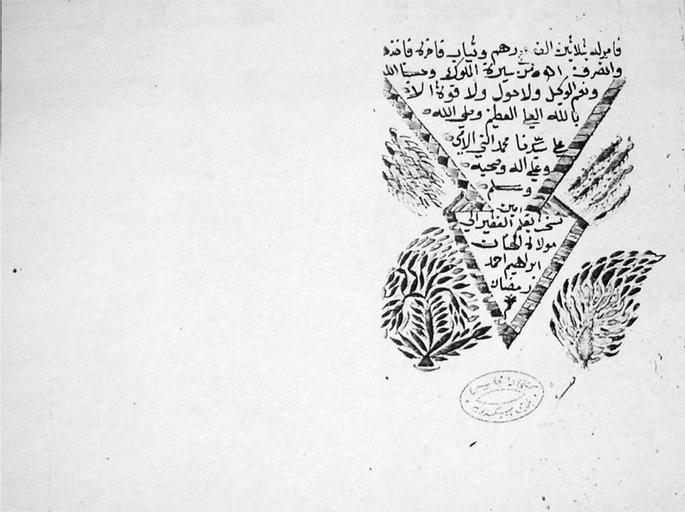 فامر له بثلاثين الف درهم وثياب فاخره فاخذه
وانصرف من سيرة الملوك وحسبنا الله
ونعم الوكيل ولا حول ولا قوة الا
بالله العلي العظيم وصلي الله
علي سيدنا محمد النبي الامي
وعلي اله وصحبه
وسلم
امين
نسخت بقلم الفقير الي
مولاه الحنان
ابراهيم احمد
رمضان